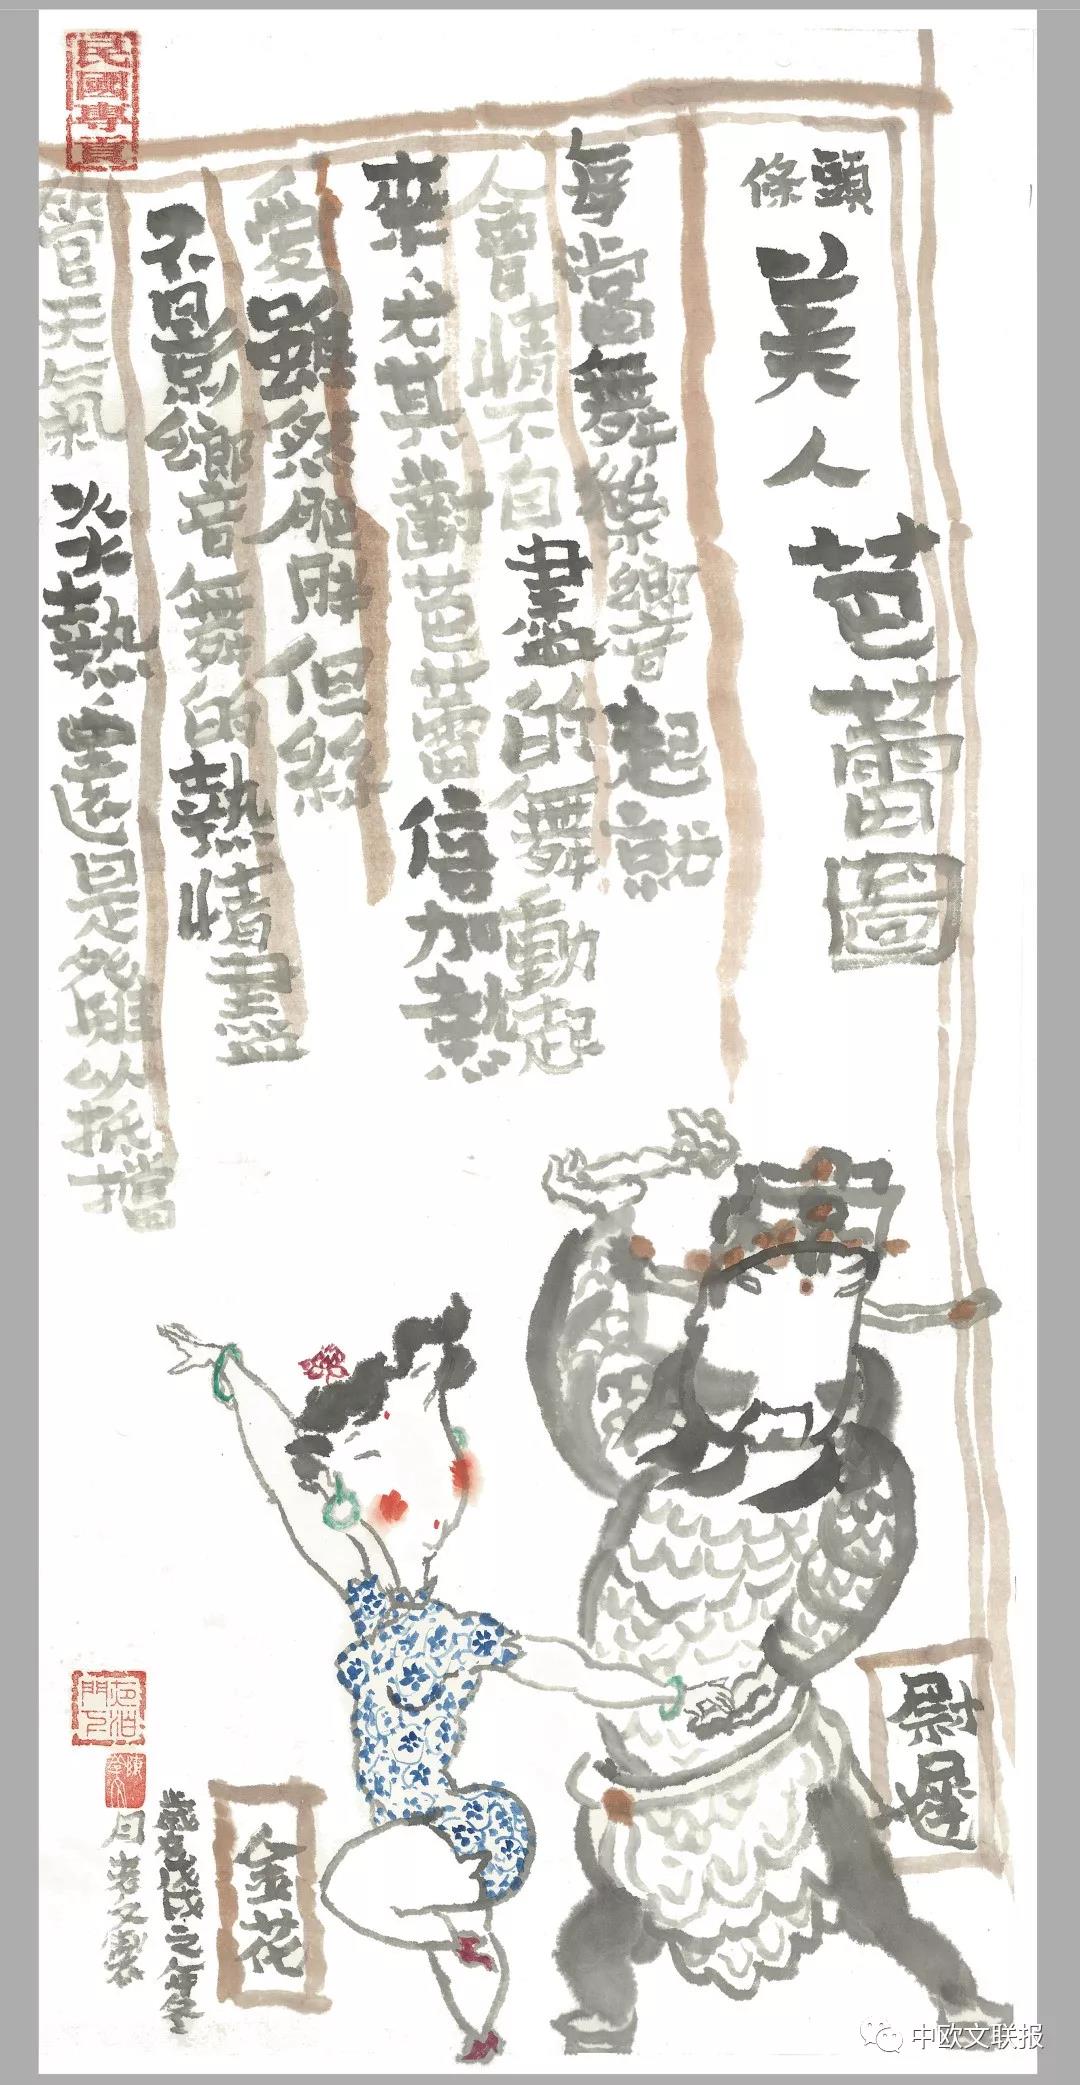 頭條
美人芭蕾圖
每當舞樂響起就
會情不自盡的舞動起
來、尤其對芭蕾倍加熱
愛雖然肥胖但絲
不影響舞的熱情盡
管天氣炎熱、還是難以抵擋
尉遲
金花
歲在戊戌之年冬
月
民國專賣
中欧文联报